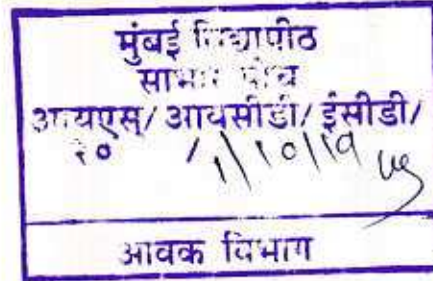 मुंबई विद्यापीठ
साभार पोच
आयएस/ आयसीडी/ ईसीडी/
२० / 1/10/19
आवक विभाग